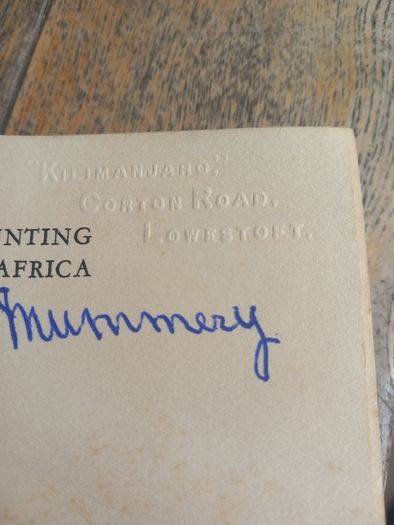 "KILIMANJARO,"
CORTON ROAD,
LOWESTOFT.
UNTING
AFRICA
Mummery